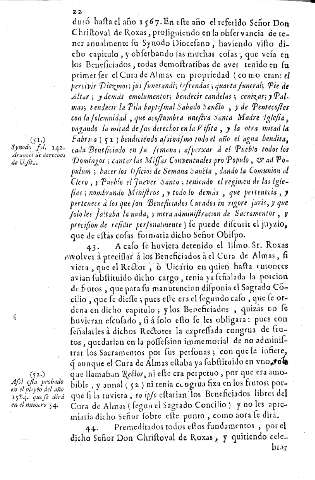 22
duró hasta el año 1567. En este año el referido Señor Don
Christoval de Roxas, prosiguiendo en la observancia de te-
ner anualmente su Synodo Diocesano, haviendo visto di-
cho capitulo, y observando las muchas cosas, que veía en
los Beneficiados, todas demostrativas de aver tenido en su
primer ser el Cura de Almas en propriedad (como eran: el
percivir Diezmos; las funerarias; ofrendas; quarta funeral; Pie de
Altar; y demás emolumentos: bendecir candelas; ceniza; y Pal-
mas; bendecir la Pila baptismal Sabado Sancto, y de Pentecostes
con la solemnidad, que acostumbra nuestra Santa Madre Iglesia,
pagando la mitad de los derechos en la Visita, y la otra mitad la
Fabrica (51); bendiciendo assimismo todo el año el agua bendita,
cada Beneficiado en su semana; assperxar à el Pueblo todos los
Domingos; cantar las Missas Conventuales pro Populo, & ad Po-
pulum; hacer los Oficios de Semana Sancta, dando la Comunion al
Clero, y Pueblo el Jueves Sancto; teniendo el regimen de las Igle-
sias; nombrando Ministros, y todo lo demás, que pertenecia, y
pertenece à los que son Beneficiados Curados in rigore juris, y que
solo les faltaba la nuda, y mera administracion de Sacramentos, y
precision de residir personalmente) se puede discurir el juyzio,
que de estas cosas formaria dicho Señor Obispo.
(51.)
Synodo fol. 142.
43. A caso se huviera detenido el Ilsmo. Sr. Roxas
en volver à precissar à los Beneficiados à el Cura de Almas, si
viera, que el Rector, ò Vicario en quien hasta entonces
avian substituido dicho cargo, tenia yá señalada la porcion
de frutos, que para su manutencion disponia el Sagrado Co-
cilio, que se diesse; pues este era el segundo caso, que se or-
dena en dicho capitulo; y los Beneficiados, quizás no se
huvieran escusado, si à solo esto se les obligara: pues con
señalarles à dichos Rectores la expressada congrua de fru-
tos, quedarian en la possession immemorial de no adminis-
trar los Sacramentos por sus personas; con que se infiere,
q̃ aunque el Cura de Almas estaba yá substituido en uno, solo
que llamaban Rector, ni este era perpetuo, por que era amo-
bible, y annal (52) ni tenia congrua fixa en los frutos; por-
que si la tuviera, ro ipso estarian los Beneficiados libres del
Cura de Almas (segun el Sagrado Concilio) y no les apre-
miaria dicho Señor sobre este punto, como aora se dirà.
(52.)
Assi esta probado
en el Synodo del año
1584. que se dirà
en el numero 54.
44. Premeditados todos estos fundamentos, por el
dicho Señor Don Christoval de Roxas, y quitiendo cele-
brar